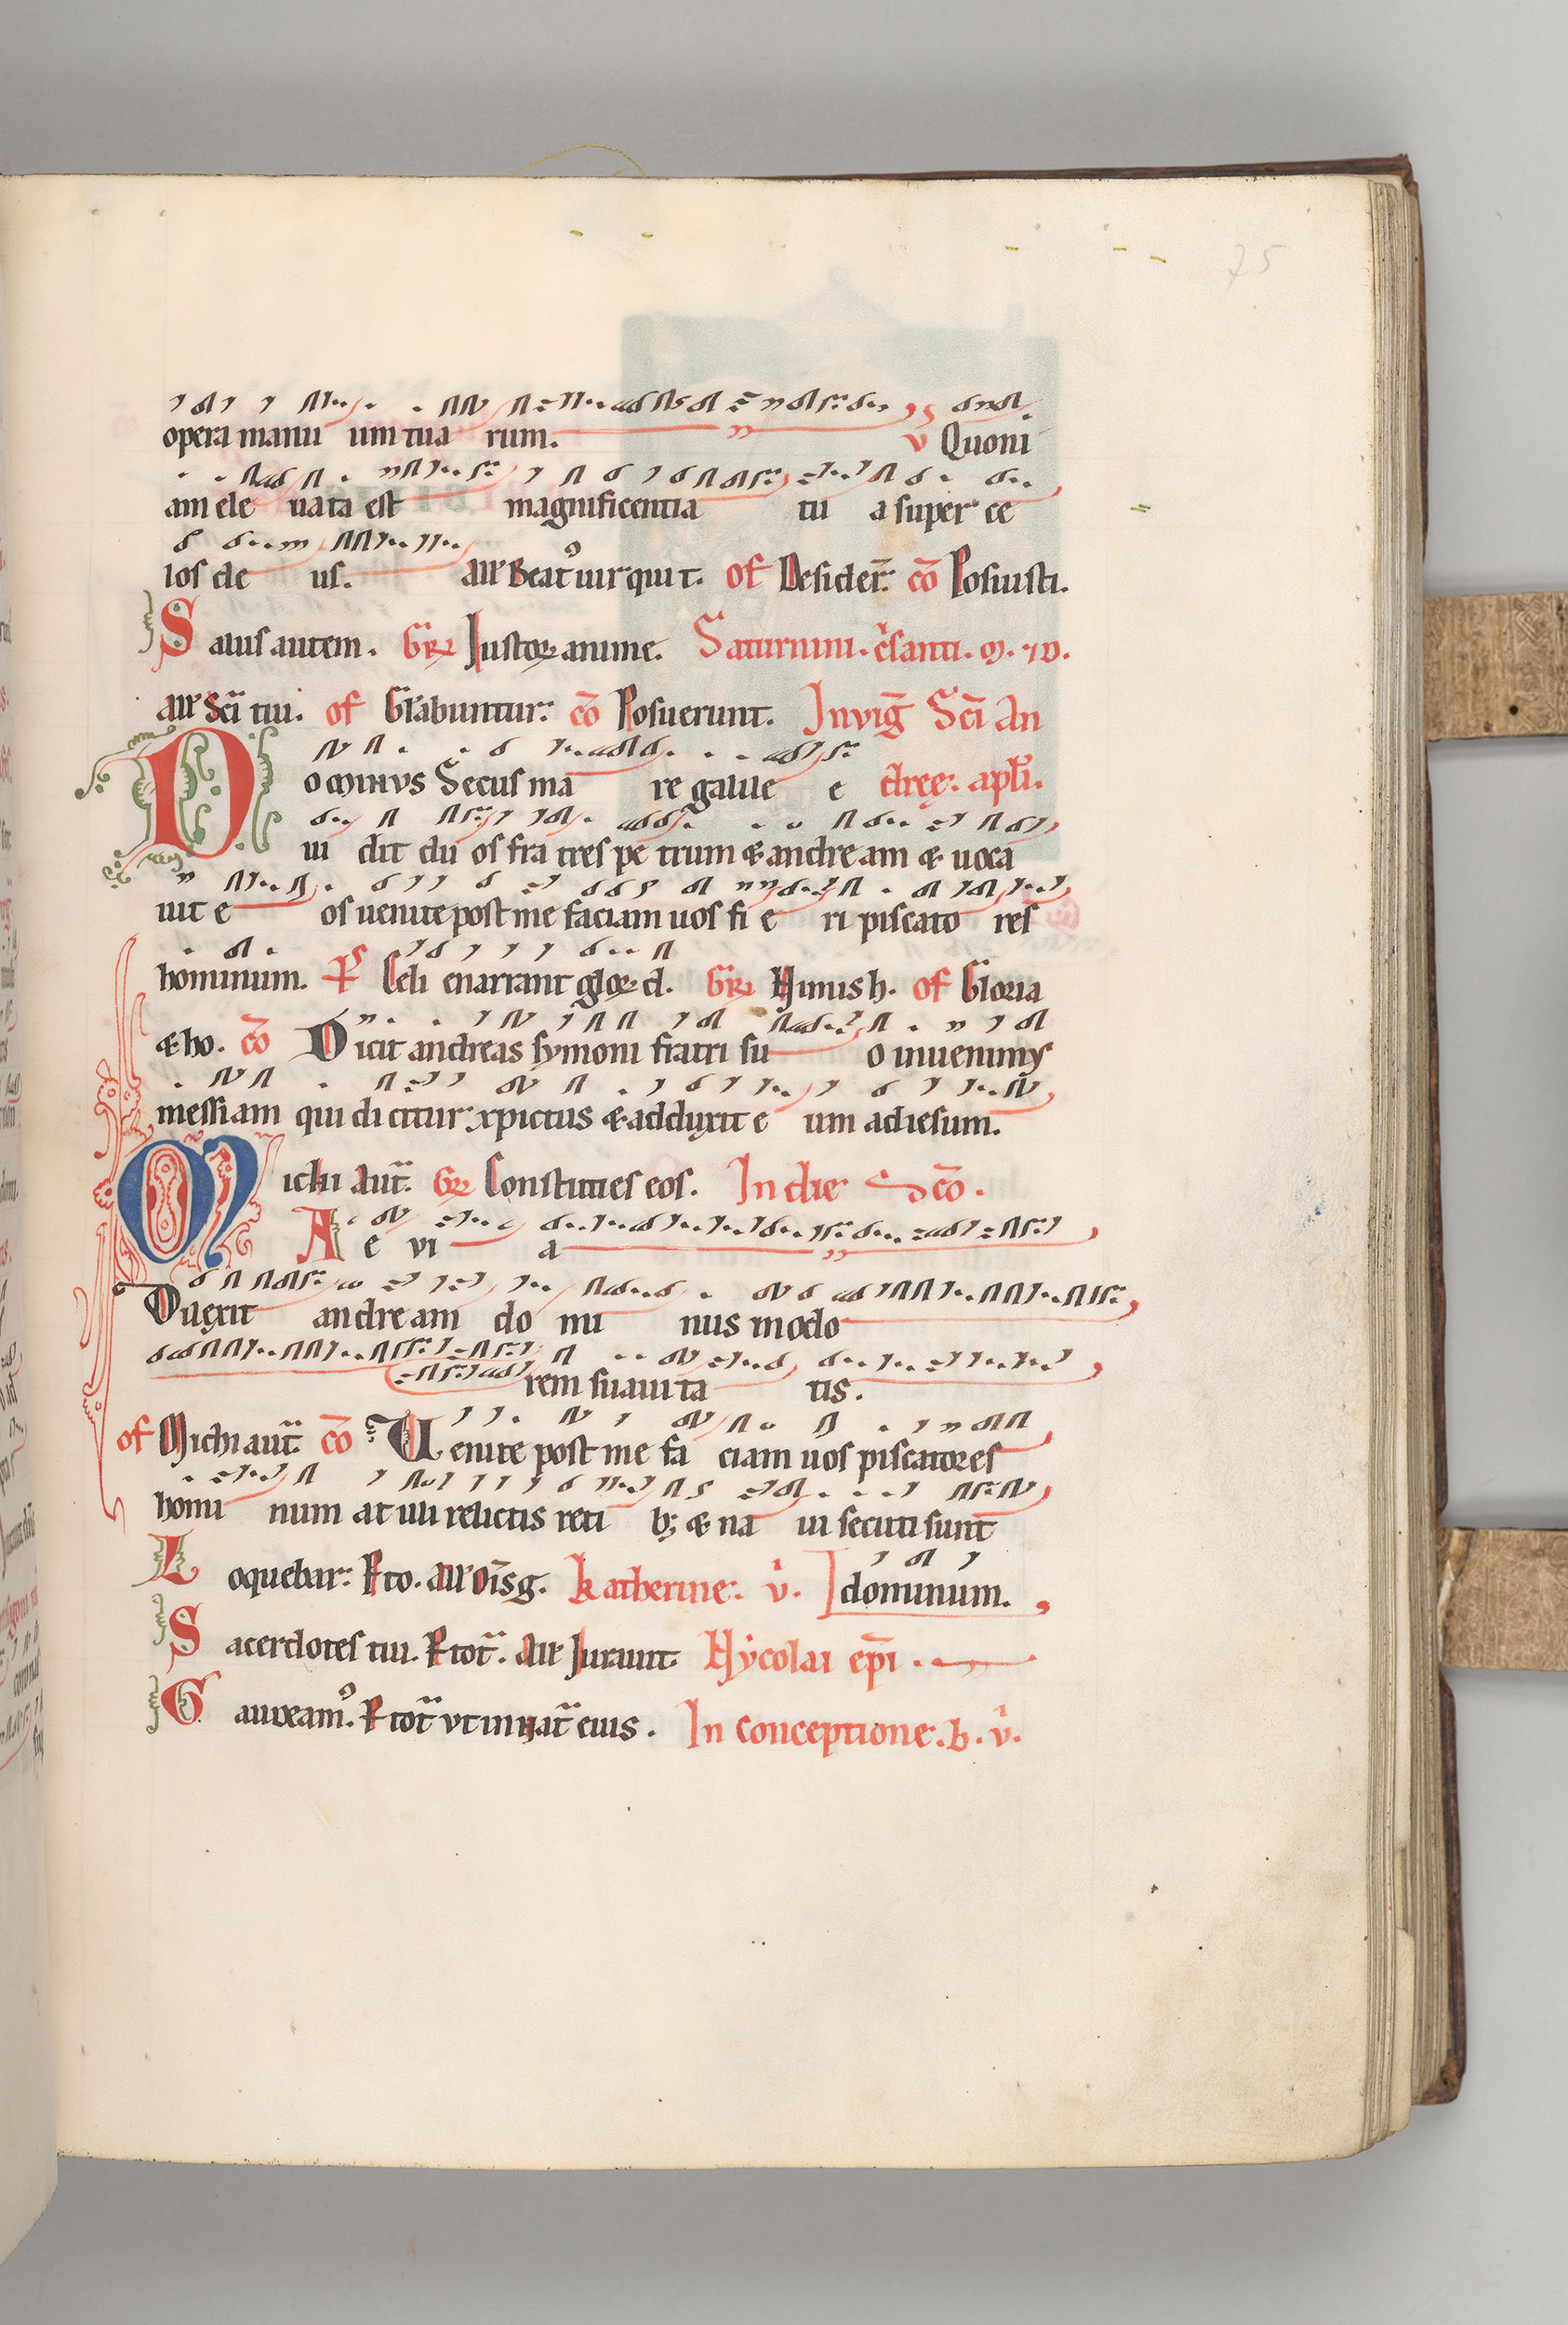 75
opera manu um tua rum. v Quoni
am ele uata est magnificentia tu a super ce
los de us. All' Beat' uir qui t. of Desider̄. cō Posuisti.
Salus autem. Gr̄ Iustoꝝ anime. Saturnini. c̄santi. m. 
All' Sc̄i tui. of Gl'abuntur. cō Posuerunt. In vig̅ Sc̄i An
Dominus Secus ma re galile e dreę. apl'i.
ui dit du os fra tres pe trum & andream & uoca
uit e os uenite post me faciam uos fi e ri piscato res
hominum. Ps Celi enarrant gloꝝ d. Gr̄ Nimis h. of Gloria
& ho. cō Dicit andreas symoni fratri su o inuenimus
messiam qui dicitur xpictus & adduxit e um ad iesum.
Michi aut̄. Gr̄ Constitues eos. In die cō.
A e vi a
Dilexit andream do mi nus in odo
rem suauita tis.
of Michi aut̄ cō Uenite post me fa ciam uos piscatores
homi num at illi relictis reti b; & na ui secuti sunt
Loquebar. Pto. All' Dīsg. katherine. v̇. dominum.
Sacerdotes tui. Ptot̄. All' Iurauit Nycolai ep̄i.
Gaudeam'. Ptot̄ vt in nat̄ eius. In conceptione. b. v̇.